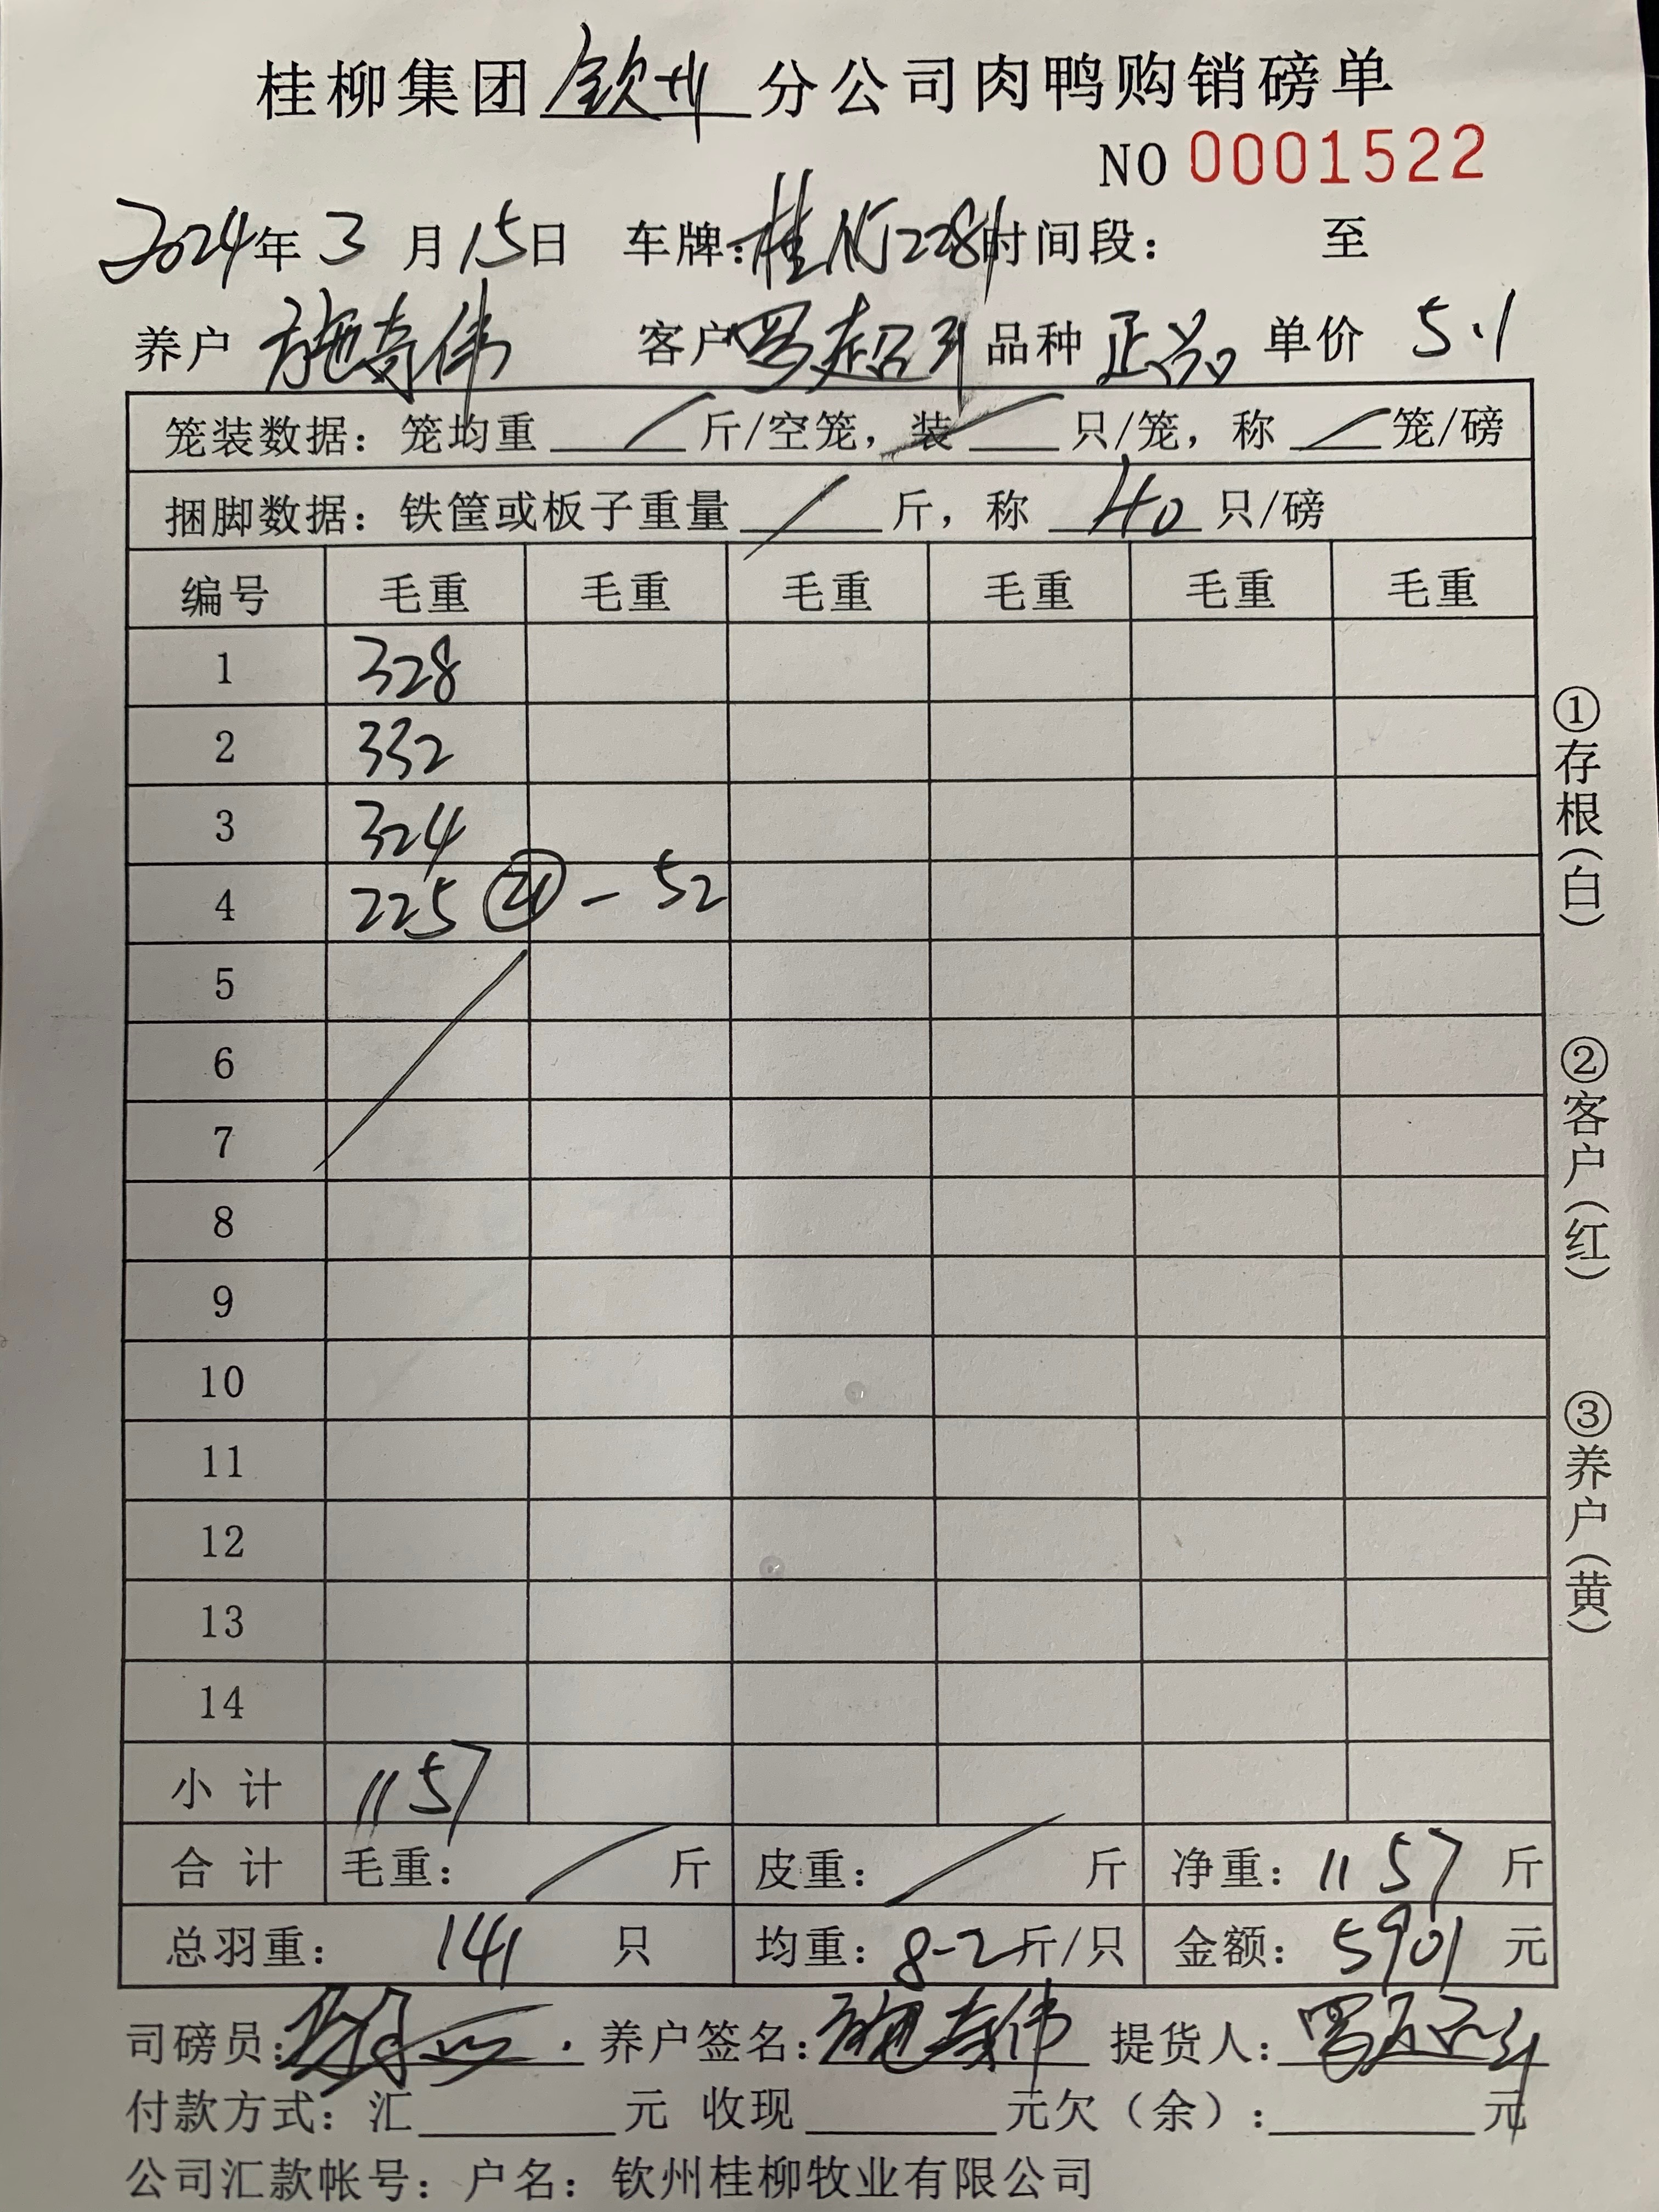 桂柳集团 钦州 分公司肉鸭购销磅单
NO 0001522
2024年 3 月 15日 车牌: 桂 2281 时间段: 至
养户 施奇伟 客户 罗超 品种 正品 单价 5.1
笼装数据: 笼均重 / 斤/空笼, 装 只/笼, 称 / 笼/磅
捆脚数据: 铁筐或板子重量 / 斤, 称 40 只/磅
编号 毛重 毛重 毛重 毛重 毛重 毛重
1 328
2 332
3 324
4 225 ㉑ - 52
5
6
7
8
9
10
11
12
13
14
小 计 1157
合 计 毛重: / 斤 皮重: / 斤 净重: 1157 斤
总羽重: 141 只 均重: 8-2 斤/只 金额: 5901 元
司磅员: 养户签名: 施奇伟 提货人: 罗
付款方式: 汇 元 收现 元欠（余）: 元
公司汇款帐号: 户名: 钦州桂柳牧业有限公司
①存根（白）
②客户（红）
③养户（黄）